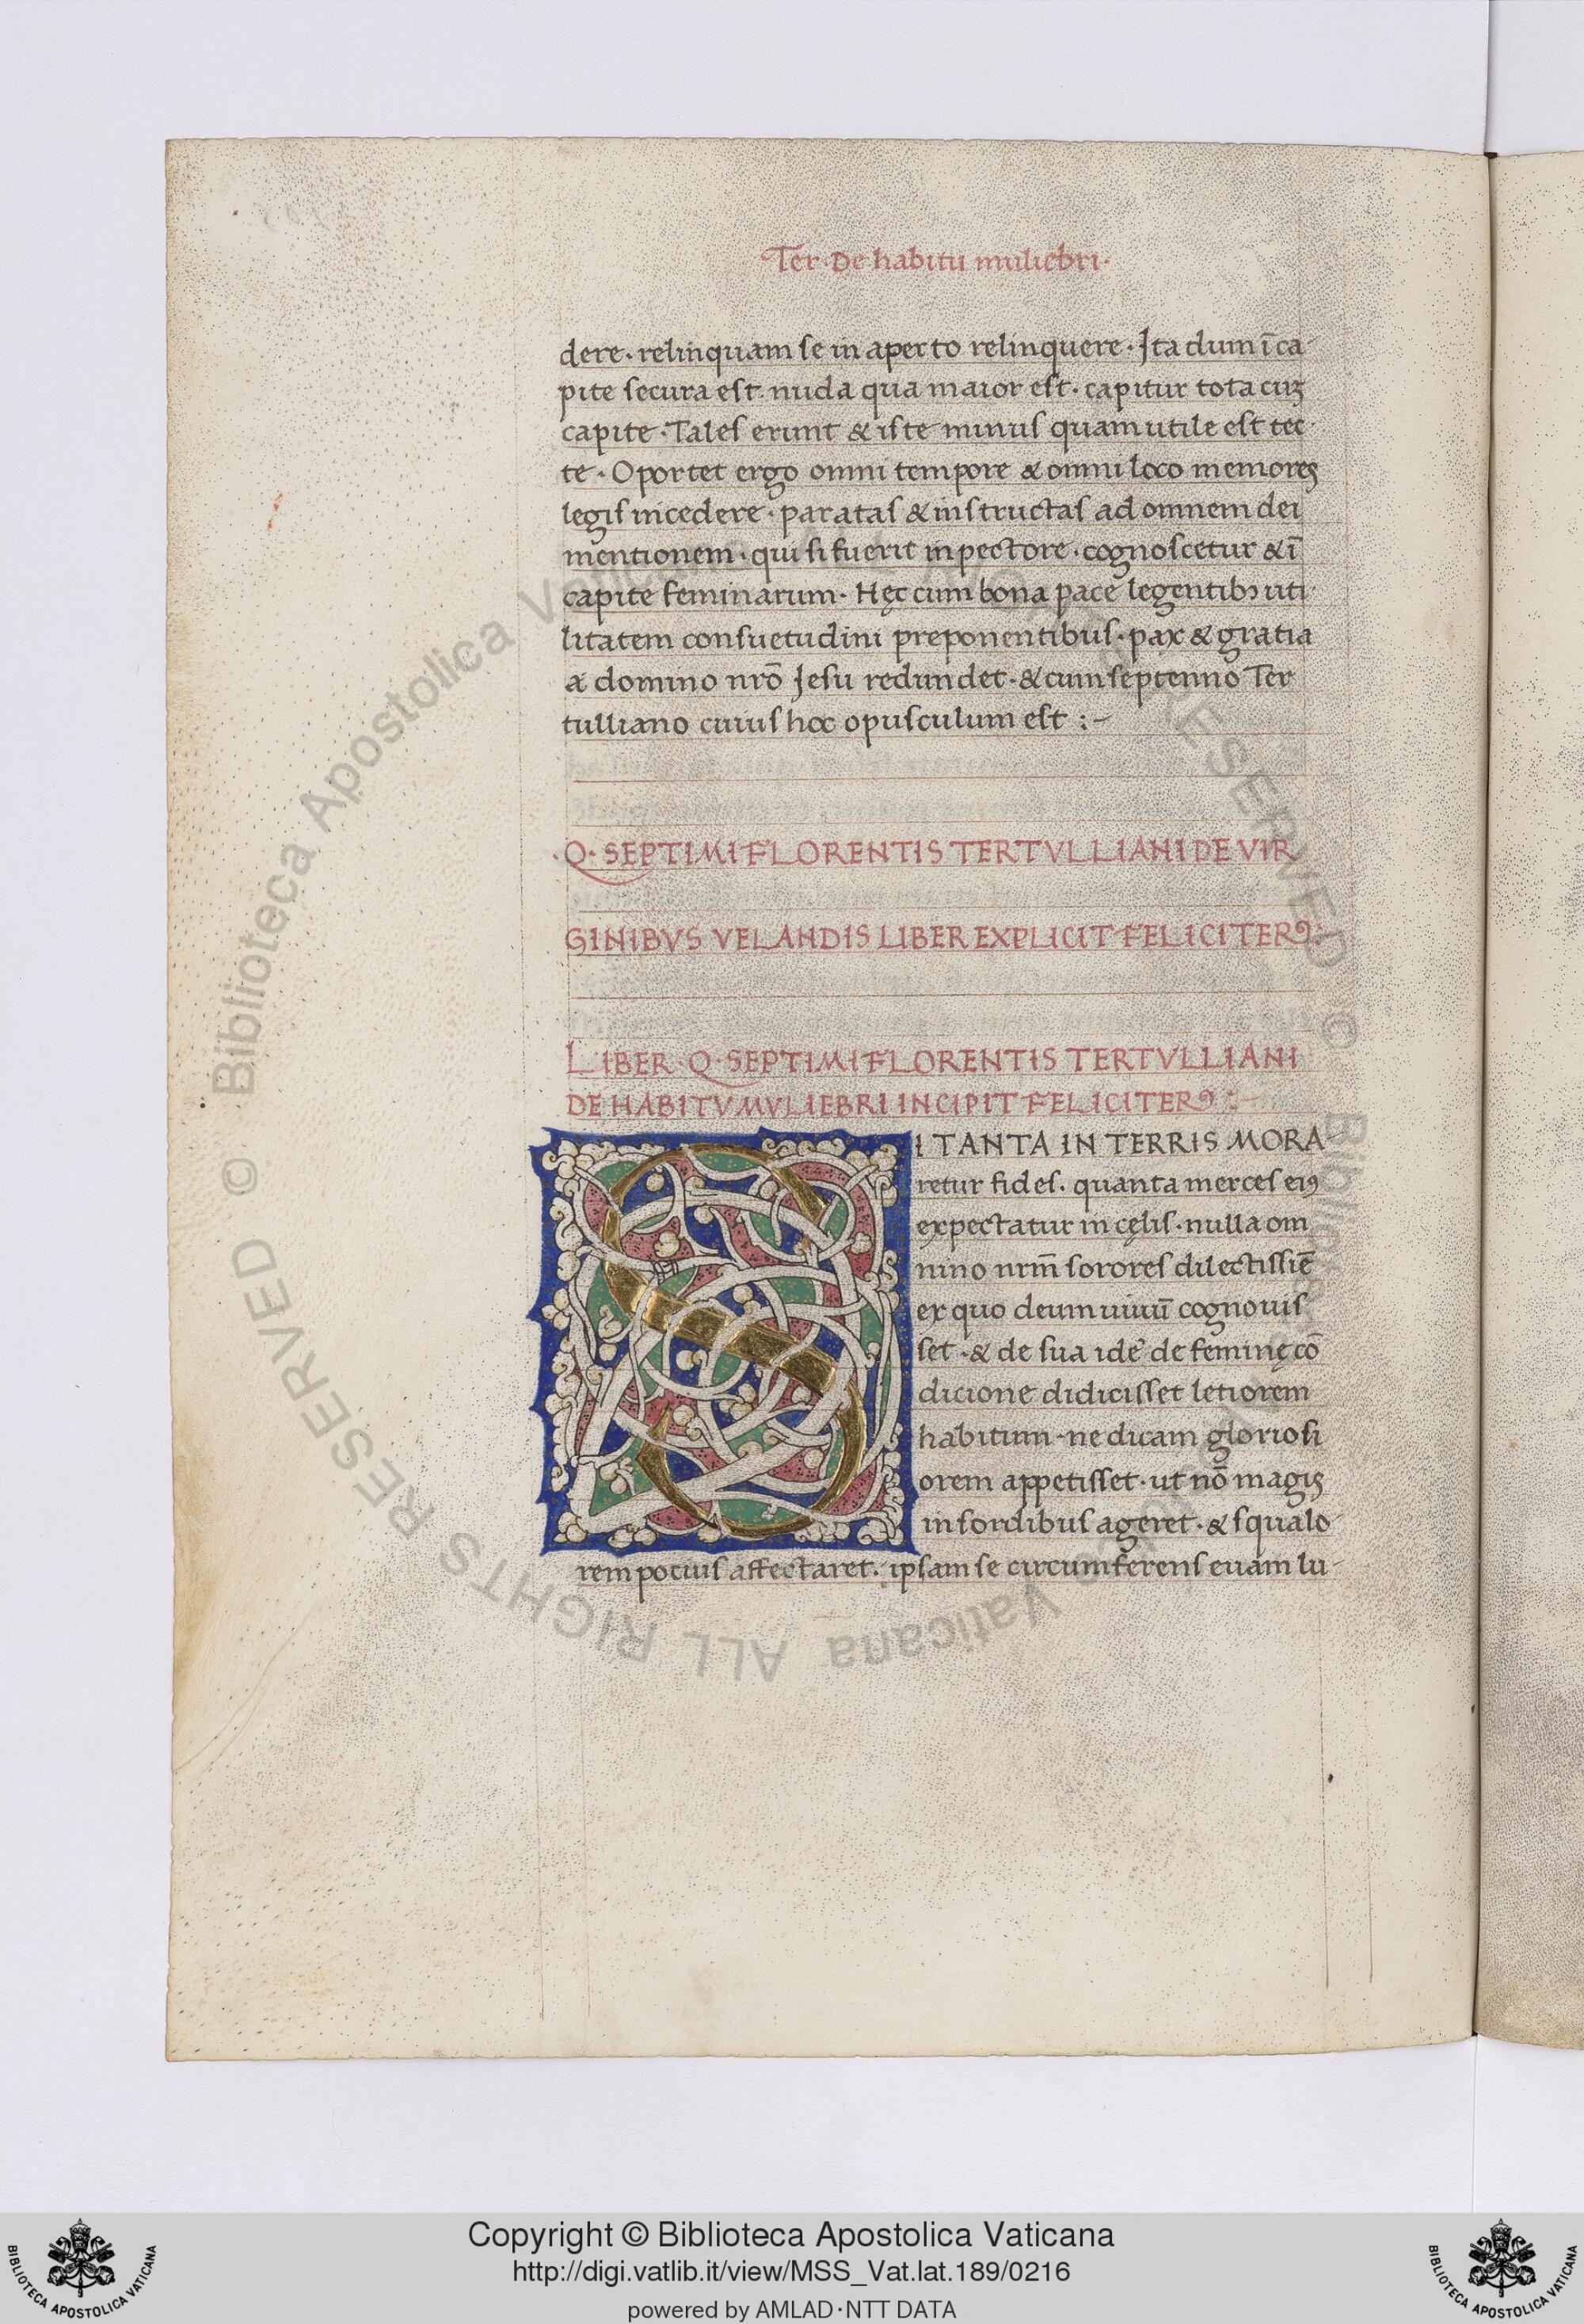 Ter· De habitu muliebri·
dere· relinquam se in aperto relinquere· Ita dum ī ca-
pite secura est· nuda qua maior est· capitur tota cuȝ
capite· Tales erunt & iste minus quam utile est tec-
te· Oportet ergo omni tempore & omni loco memores
legis incedere· paratas & instructas ad omnem dei
mentionem· qui si fuerit in pectore· cognoscetur & ī
capite feminarum· Hęc cum bona pace legentibꝫ uti
litatem consuetudini preponentibus· pax & gratia
a domino nrō Jesu redundet· & cum septenno Ter
tulliano cuius hoc opusculum est :-
·Q· SEPTIMI FLORENTIS TERTVLLIANI DE VIR
GINIBVS VELANDIS LIBER EXPLICIT FELICITER :
LIBER· Q· SEPTIMI FLORENTIS TERTVLLIANI
DE HABITV MVLIEBRI INCIPIT FELICITER :-
SI TANTA IN TERRIS MORA
retur fides· quanta merces eiꝰ
expectatur in cęlis· nulla om
nino nrm̄ sorores dilectissiē
ex quo deum uiuū cognouis
set· & de sua idē de feminę cō
dicione didicisset letiorem
habitum· ne dicam gloriosi
orem appetisset· ut nō magis
in sordibus ageret· & squalo-
rem pocius affectaret· ipsam se circumferens euam lu-
© Biblioteca Apostolica Vaticana ALL RIGHTS RESERVED
Copyright © Biblioteca Apostolica Vaticana
http://digi.vatlib.it/view/MSS_Vat.lat.189/0216
powered by AMLAD·NTT DATA
BIBLIOTECA APOSTOLICA VATICANA
BIBLIOTECA APOSTOLICA VATICANA